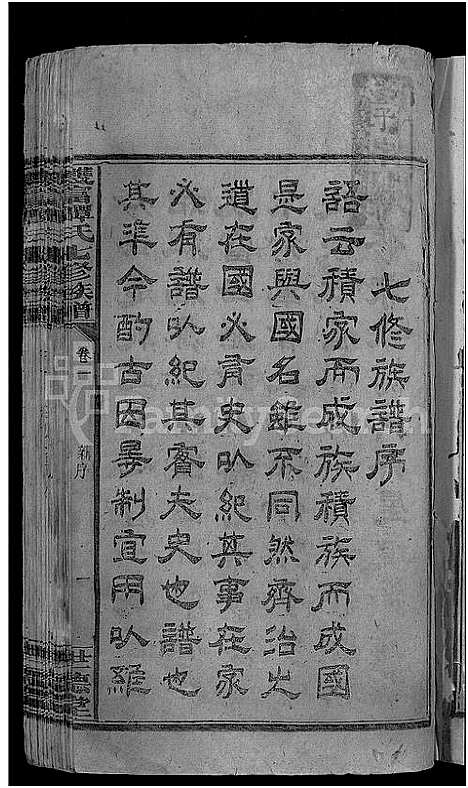 七修族譜序
語云積家而成族積族而成國
是家與國名雖不同然齊治之
道在國必有史以紀其事在家
必有譜以紀其實夫史也譜也
其準今酌古因晷制宜用以維
譚氏七修族譜
卷一
新序
一